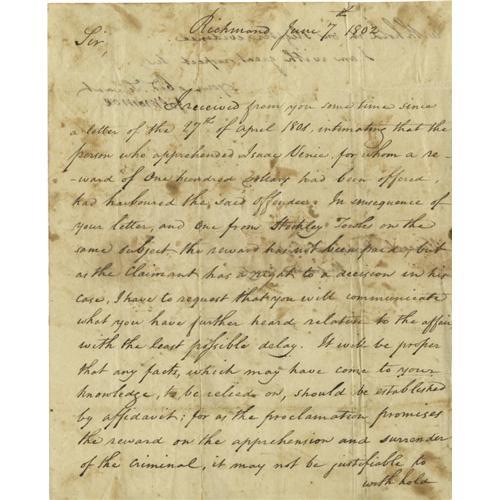 Richmond June 7th 1802
Sir,
I received from you some time since
a letter of the 27th of April 1801, intimating that the
person who apprehended Isaac Venie, for whom a re-
-ward of One hundred dollars had been offered,
had harboured the said offender. In consequence of
your letter, and one from Stockley Towles on the
same subject the reward has not been paid; but
as the Claimant has a right to a decision in his
case, I have to request that you will communicate
what you have further heard relative to the affair
with the least possible delay. It will be proper
that any facts, which may have come to your
knowledge, to be relied on, should be established
by affidavit; for as the proclamation promises
the reward on the apprehension and surrender
of the criminal, it may not be justifiable to
withhold